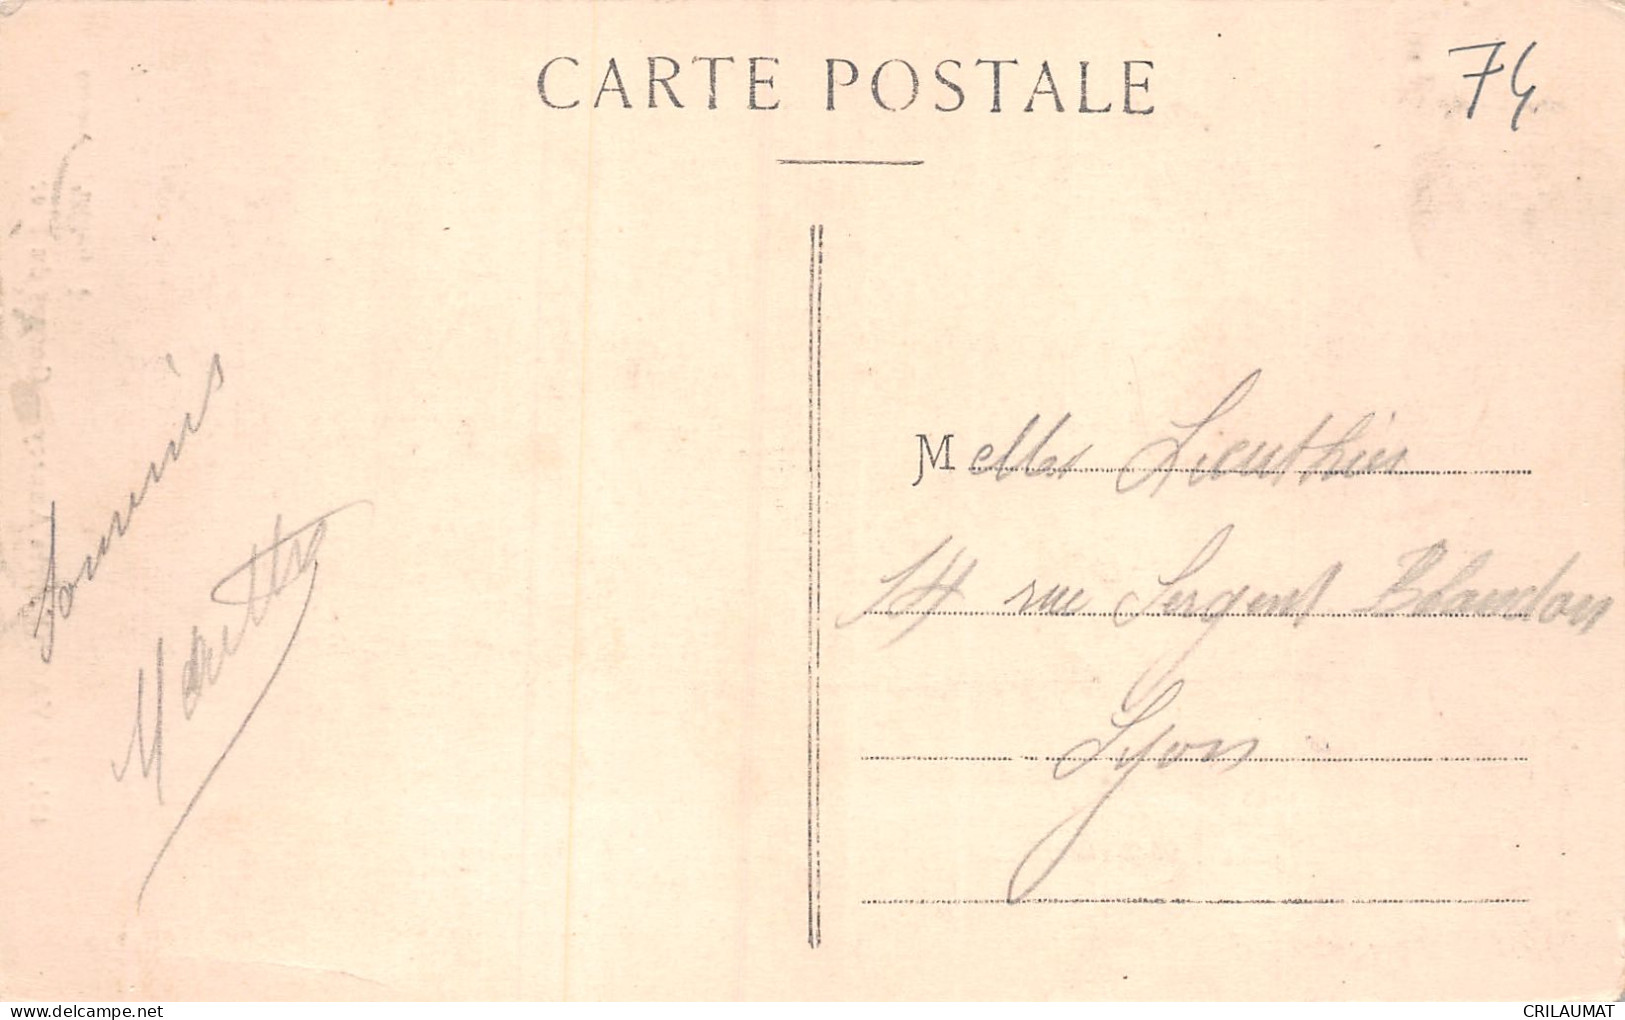 CARTE POSTALE
74
Souvenirs
Marette
Melles Lieuthier
14 rue Sergent Blandan
Lyon
www.delcampe.net
CRILAUMAT